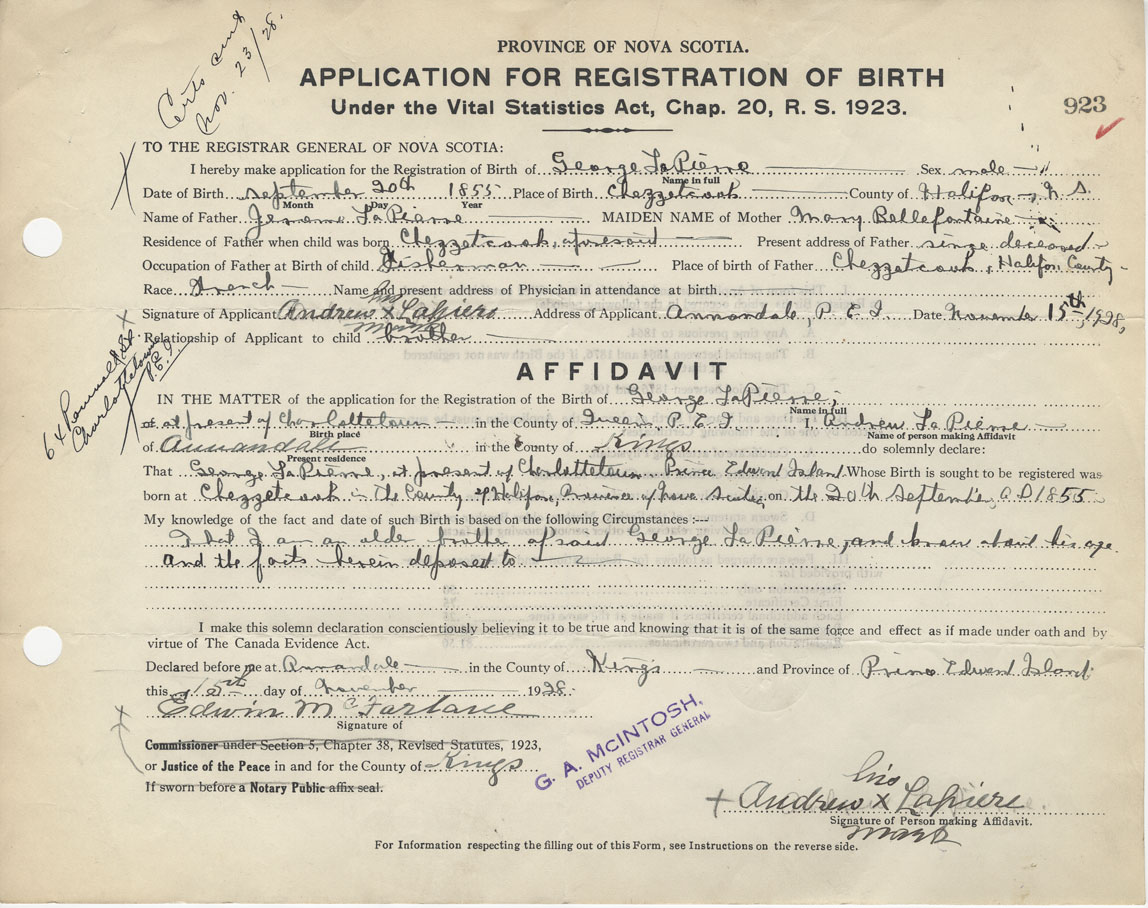 Certs sent
Nov. 23/28.
PROVINCE OF NOVA SCOTIA.
APPLICATION FOR REGISTRATION OF BIRTH
Under the Vital Statistics Act, Chap. 20, R. S. 1923.
923
TO THE REGISTRAR GENERAL OF NOVA SCOTIA:
I hereby make application for the Registration of Birth of George LaPierre Sex male
Name in full
Date of Birth September 20th 1855 Place of Birth Chezzetcook County of Halifax, N. S.
Month Day Year
Name of Father Jerome LaPierre MAIDEN NAME of Mother Mary Bellefontaine
Residence of Father when child was born Chezzetcook, aforesaid Present address of Father since deceased
Occupation of Father at Birth of child Fisherman Place of birth of Father Chezzetcook, Halifax County
Race French Name and present address of Physician in attendance at birth
his
Signature of Applicant Andrew X Lapiere Address of Applicant Annandale, P. E. I. Date November 15th, 1928,
mark
Relationship of Applicant to child brother
64 St
Charlottetown
P.E.I
AFFIDAVIT
IN THE MATTER of the application for the Registration of the Birth of George LaPierre,
Name in full
of at present of Charlottetown in the County of Queens, P. E. I. I, Andrew LaPierre
Birth place Name of person making Affidavit
of Annandale in the County of Kings do solemnly declare:
Present residence
That George LaPierre, at present of Charlottetown Prince Edward Island Whose Birth is sought to be registered was
born at Chezzetcook in the County of Halifax, Province of Nova Scotia, on the 20th September, A D 1855
My knowledge of the fact and date of such Birth is based on the following Circumstances :—
That I am an older brother of said George LaPierre, and know about his age
and the facts herein deposed to
I make this solemn declaration conscientiously believing it to be true and knowing that it is of the same force and effect as if made under oath and by
virtue of The Canada Evidence Act.
Declared before me at Annandale in the County of Kings and Province of Prince Edward Island
this 15th day of November 1928.
Edwin McFarlane
Signature of
Commissioner under Section 5, Chapter 38, Revised Statutes, 1923,
or Justice of the Peace in and for the County of Kings
If sworn before a Notary Public affix seal.
G. A. MCINTOSH,
DEPUTY REGISTRAR GENERAL
his
Andrew X Lapiere
Signature of Person making Affidavit.
mark
For Information respecting the filling out of this Form, see Instructions on the reverse side.